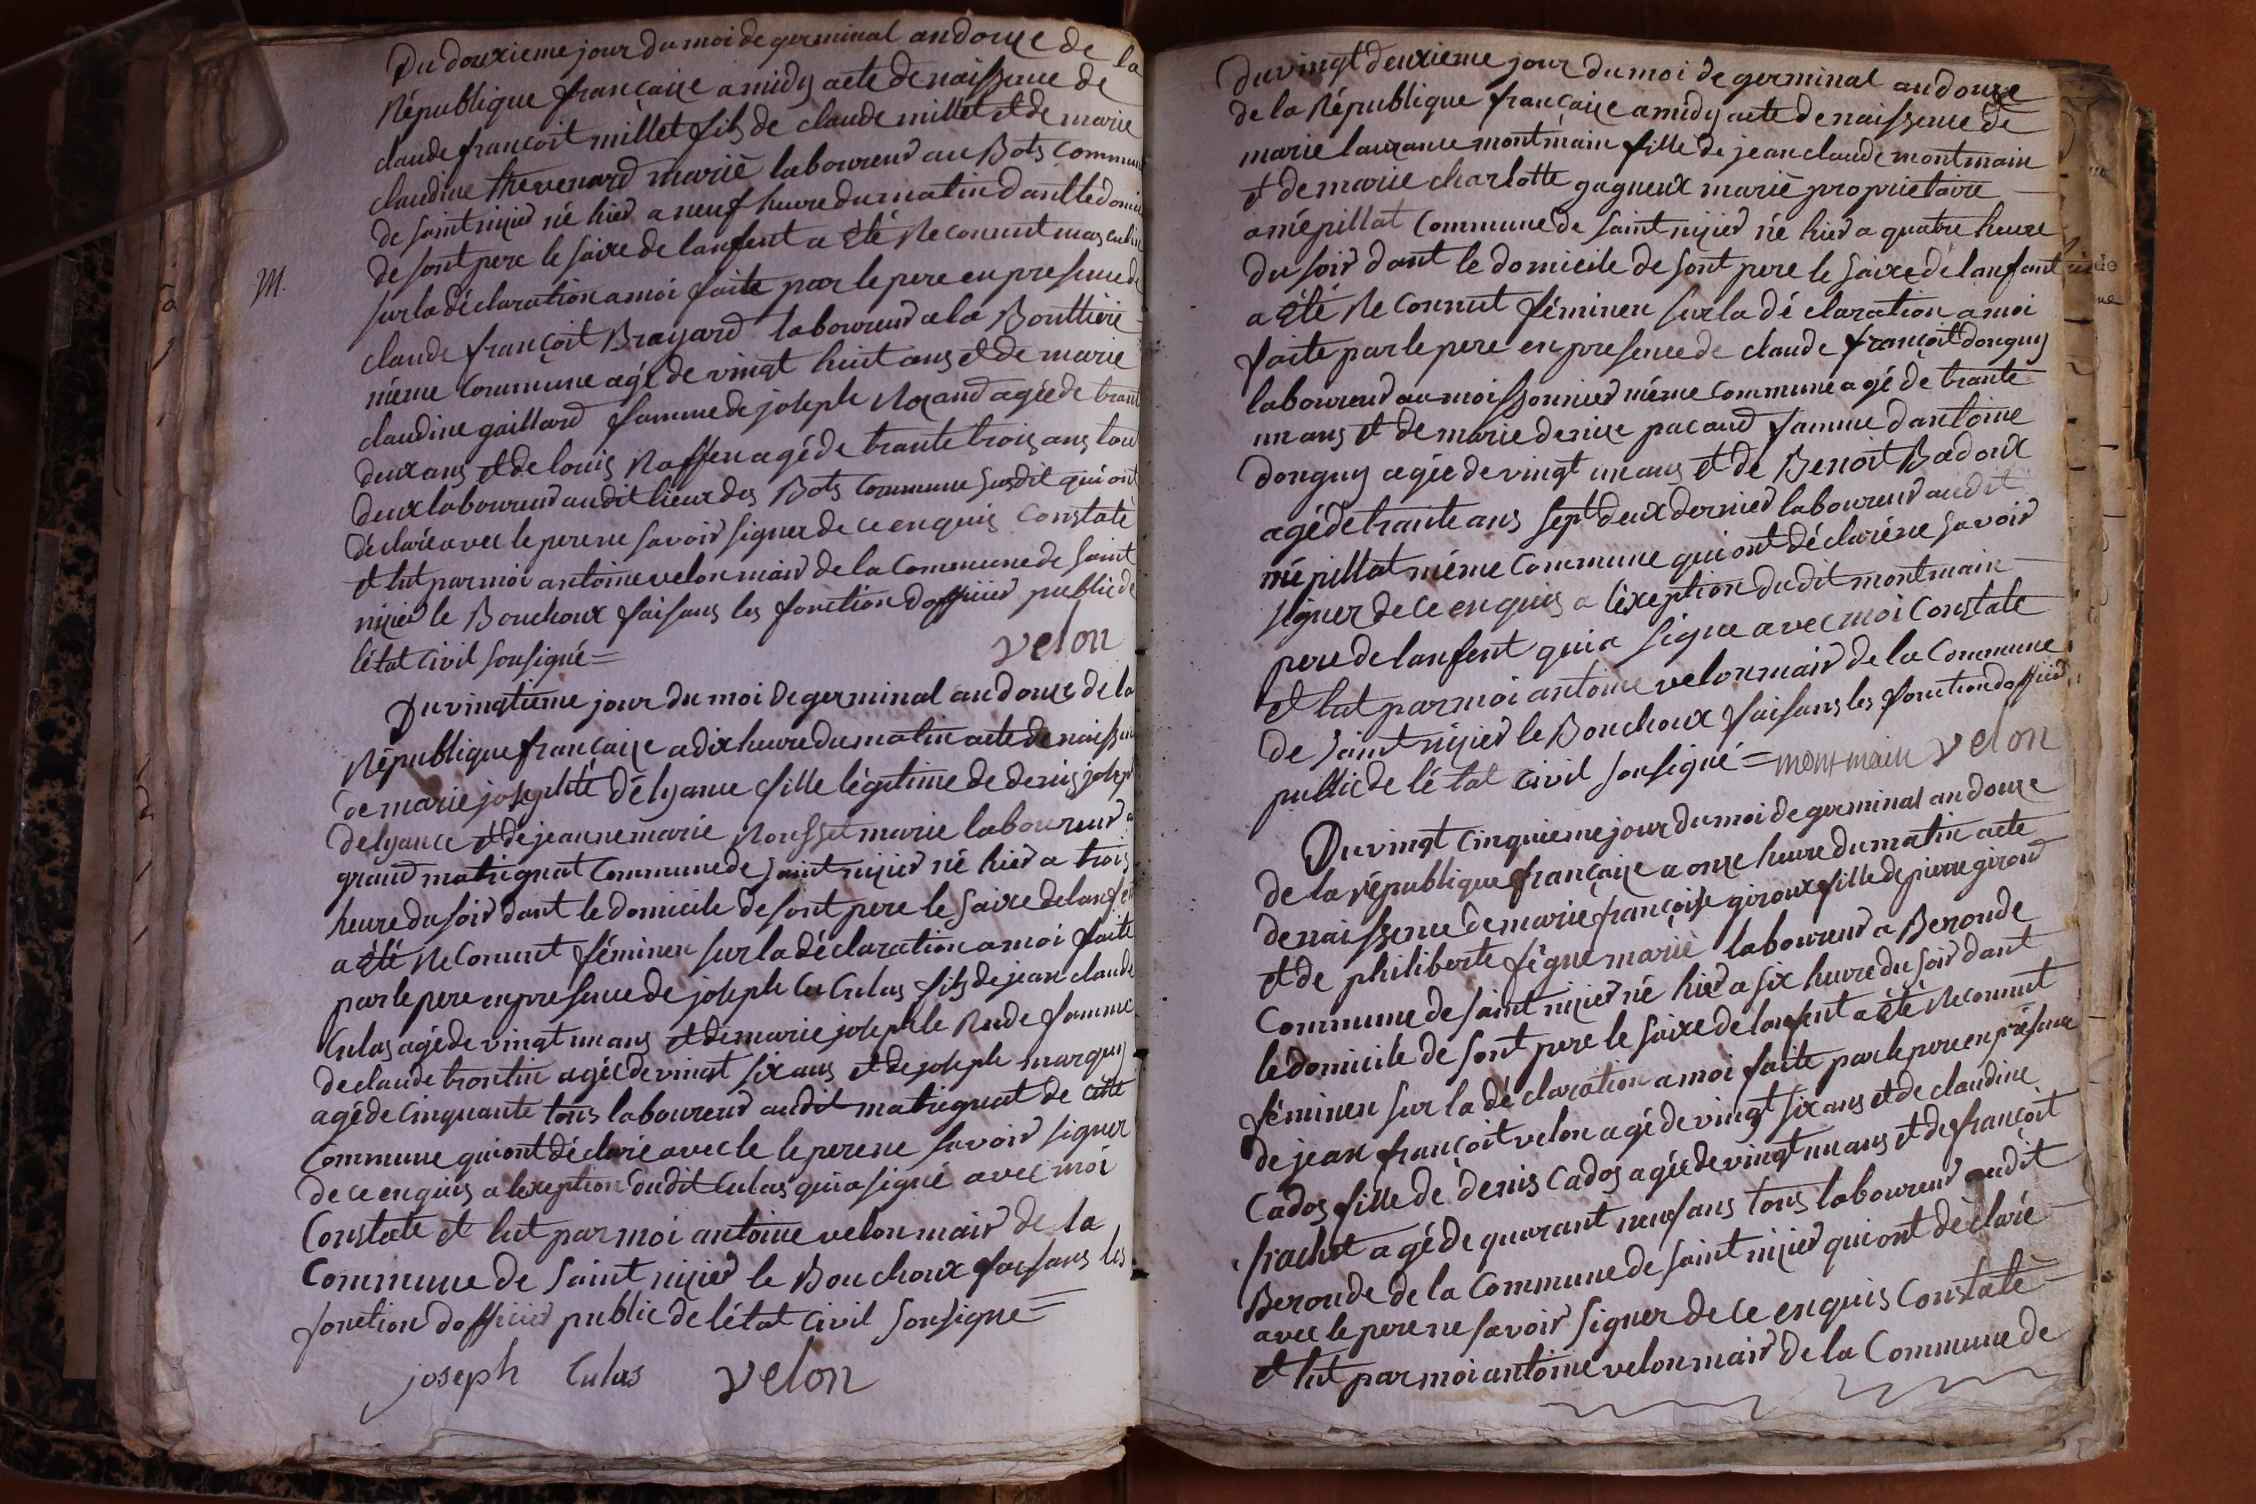 Du douxieme jour du moi de germinal an douze de la
République françaize a midy acte de naissence de
claude françoit millet fils de claude millet et de marie
claudine thevenard marié laboureur au Bots Commune
de saint nizier né hier a neuf heure du matin dant le domicile
de sont pere le saixe de lanfent a été Reconnut masculin
M.
sur la déclaration a moi faite par le pere en presence de
claude françoit Brayard laboureur a la Bouttiere
méme Commune agé de vingt huit ans et de marie
claudine gaillard famme de joseph Morand agée de trante
deux ans et de louis Raffen agé de trante trois ans tou
deux laboureur audit lieux des Bots Commune susdit qui ont
déclaré avec le pere ne savoir signer de ce enquis Constate
et lut par moi antoine velon mair de la Commune de saint
nizier le Bouchoux faisans les fonction dofficier public de
létat civil sousigné =
velon
Du vingtieme jour du moi de germinal an douze de la
République françaize a dix heure du matin acte de naissence
de marie josephte délyance fille légitime de denis joseph
delyance et de jeanne marie Rousset marie laboureur a
grand matrignat Commune de saint nizier né hier a trois
heure du soir dant le domicile de sont pere le saixe de lanfent
a été Reconnut féminen sur la déclaration a moi faite
par le pere en presence de joseph Culas fils de jean claude
Culas agé de vingt un ans et de marie josephle Rude famme
de claude trontin agée de vingt six ans et de joseph marguy
agé de Cinquante tous laboureur audit matrignat de cette
Commune qui ont déclaré avec le le pere ne savoir signer
de ce enquis a lexeption dudit Culas qui a signé avec moi
Constate et lut par moi antoine velon mair de la
Commune de saint nizier le Bouchoux faisans les
fonction dofficier public de létat civil sousigne =
joseph Culas velon
Du vingt deuxieme jour du moi de germinal an douze
de la République françaize a midy acte de naissence de
marie laurance montmain fille de jean claude montmain
et de marie charlotte gagneux marié proprietaire
a mépillat Commune de saint nizier né hier a quatre heure
du soir dant le domicile de sont pere le saixe de lanfant
a été Reconnut féminen sur la déclaration a moi
faite par le pere en presence de claude françoit donguy
laboureur au moissonnier méme Commune agé de trante
un ans et de marie denise pacaud famme dantoine
donguy agée de vingt un ans et de Benoit Badoux
agé de trante ans sept deux dernier laboureur audit
mépillat méme Commune qui ont déclaré ne savoir
signer de ce enquis a léxeption dudit montmain
pere de lanfent qui a signe avec moi Constate
et lut par moi antoine velon mair de la Commune
de saint nizier le Bouchoux faisans les fonction dofficier
public de létat civil sousigné = montmain velon
Du vingt cinquieme jour du moi de germinal an douze
de la république françaize a onze heure du matin acte
de naissence de marie françoise giroux fille de pierre giroud
et de philiberte fégue marié laboureur a Beronde
Commune de saint nizier né hier a six heure du soir dant
le domicile de sont pere le saixe de lanfent a été Reconnut
féminen sur la déclaration a moi faite par le pere en présence
de jean françoit velon agé de vingt six ans et de claudine
Cados fille de denis Cados agée de vingt un ans et de françoit
frachet agé de quarant neuf ans tous laboureur audit
Beronde de la Commune de saint nizier qui ont déclaré
avec le pere ne savoir signer de ce enquis Constaté
et lut par moi antoine velon mair de la Commune de